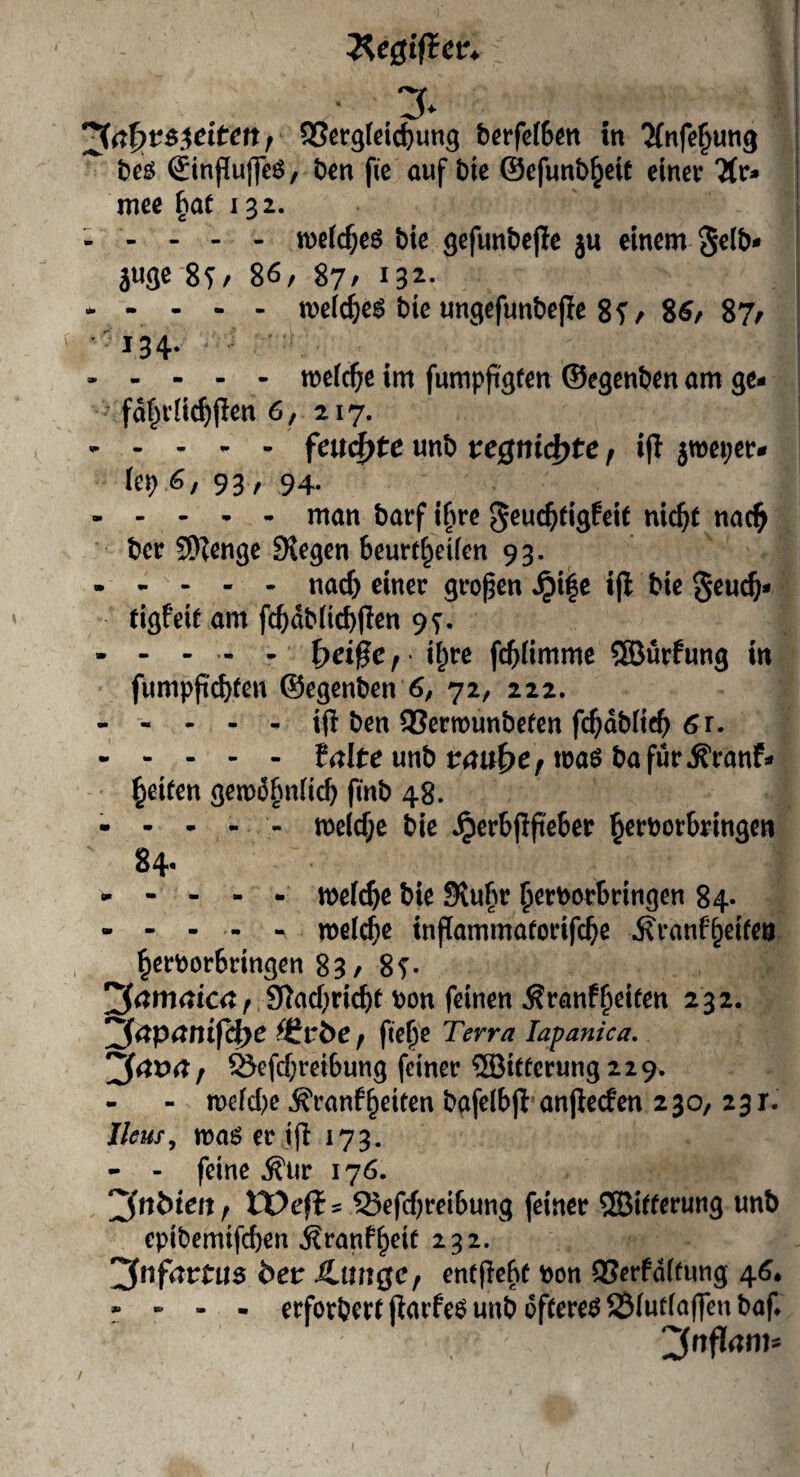 Regiſter.
J.
Jahrszeiten, Vergleichung derſelben in Anſehung
des Einfluſſes, den ſie auf die Geſundheit einer Ar-
mee hat 132.
- - - - - welches die geſundeſte zu einem Feld-
zuge 85, 86, 87, 132.
- - - - - welches die ungeſundeſte 85, 86, 87,
134.
- - - - - welche im ſumpfigten Gegenden am ge-
fährlichſten 6, 217.
- - - - - feuchte und regnichte, iſt zweyer-
ley 6, 93, 94.
- - - - - man darf ihre Feuchtigkeit nicht nach
der Menge Regen beurtheilen 93.
- - - - - nach einer großen Hitze iſt die Feuch-
tigkeit am ſchädlichſten 95.
- - - - - heiße, ihre ſchlimme Würkung in
ſumpfichten Gegenden 6, 72, 222.
- - - - - iſt den Verwundeten ſchädlich 61.
- - - - - kalte und rauhe, was da für Krank-
heiten gewöhnlich ſind 48.
- - - - - welche die Herbſtfieber hervorbringen
84.
- - - - - welche die Ruhr hervorbringen 84.
- - - - - welche inflammatoriſche Krankheiten
hervorbringen 83, 85.
Jamaica, Nachricht von ſeinen Krankheiten 232.
Japaniſche Erde, ſiehe Terra Iapanica.
Java, Beſchreibung ſeiner Witterung 229.
- - welche Krankheiten daſelbſt anſtecken 230, 231.
Ileus, was er iſt 173.
- - ſeine Kur 176.
Indien, Weſt- Beſchreibung ſeiner Witterung und
epidemiſchen Krankheit 232.
Infartus der Lunge, entſteht von Verkältung 46.
- - - - erfordert ſtarkes und öfteres Blutlaſſen daſ.
Inflam-